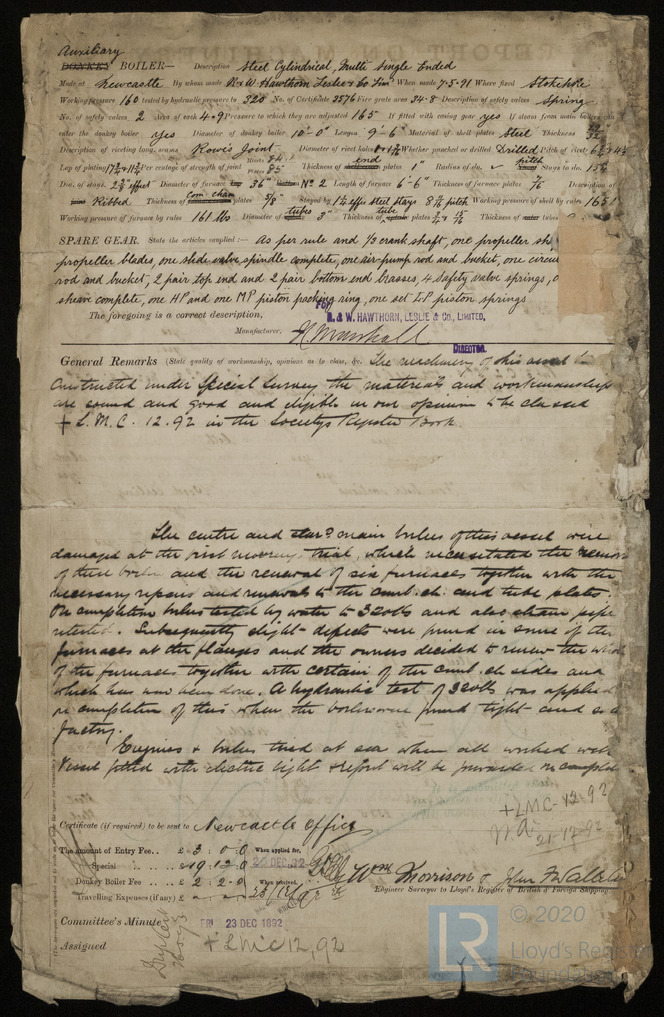 Auxiliary
DONKEY BOILER— Description Steel Cylindrical, Multi Single Ended
Made at Newcastle By whom made R & W Hawthorn Leslie & Co Limd When made 7-5-91 Where fixed Stokehole
Working pressure 160 tested by hydraulic pressure to 320 No. of Certificate 3576 Fire grate area 34.8 Description of safety valves Spring
No. of safety valves 2 Area of each 4.91 Pressure to which they are adjusted 165 If fitted with easing gear yes If steam from main boilers can
enter the donkey boiler yes Diameter of donkey boiler 10'-0" Length 9'-6" Material of shell plates Steel Thickness
Description of riveting long. seams Rowe's Joint Diameter of rivet holes Whether punched or drilled Drilled Pitch of rivets
Lap of plating Per centage of strength of joint Rivets 84 Plates 85 Thickness of end plates 1" Radius of do. ✓ pitch Stays to do. 15
Dia. of stays. Diameter of furnace 36" No 2 Length of furnace 6'-6" Thickness of furnace plates 7/16 Description of
Ribbed Thickness of Com. cham plates 5/8 Stayed by Steel Stays 8 pitch Working pressure of shell by rules 165
Working pressure of furnace by rules 161 lbs Diameter of tubes 3" Thickness of tube plates Thickness of tubes
SPARE GEAR. State the articles supplied:— As per rule and 1/3 crank shaft, one propeller
propeller blades, one slide valve spindle complete, one air pump rod and bucket, one
rod and bucket, 2 pair top end and 2 pair bottom end brasses, 4 Safety valve springs,
sheave complete, one HP and one MP piston packing ring, one set LP piston springs
The foregoing is a correct description,
FOR R. & W. HAWTHORN, LESLIE & Co., LIMITED,
Manufacturer. Marshall
DIRECTOR.
General Remarks (State quality of workmanship, opinions as to class, &c. The machinery of this vessel
Constructed under Special Survey the materials and workmanship
are sound and good and eligible in our opinion to be classed
+ L.M.C. 12.92 in the Societys Register Book.
The centre and star'd main boilers of this vessel were
damaged at the first moorings trial, which necessitated the
of these boilers and the renewal of six furnaces together with the
necessary repairs and renewals to the comb. ch. and tube plates.
On completion boilers tested by water to 320 lbs and also steam pipe
retested. Subsequently slight defects were found in some of the
furnaces at the flanges and the owners decided to renew the whole
of the furnaces together with certain of the comb. ch sides and
which has now been done. A hydraulic test of 320 lbs was applied
on completion of this when the boilers were found tight and
factory.
Engines & boilers tried at sea when all worked well
Vessel fitted with electric light & report will be forwarded on
+LMC-12.92
21-12-92
Certificate (if required) to be sent to Newcastle Office
The amount of Entry Fee.. £ 3 : 0 : 0 When applied for,
Special .. .. £ 19 : 12 : 0
Donkey Boiler Fee .. £ 2 : 2 : 0 When received,
Travelling Expenses (if any) £
Wm Morrison & John
Engineer Surveyors to Lloyd's Register of British & Foreign Shipping
Committee's Minute FRI 23 DEC 1892
Assigned + LMC 12,92
LR
© 2020
Lloyd's Register
Foundation